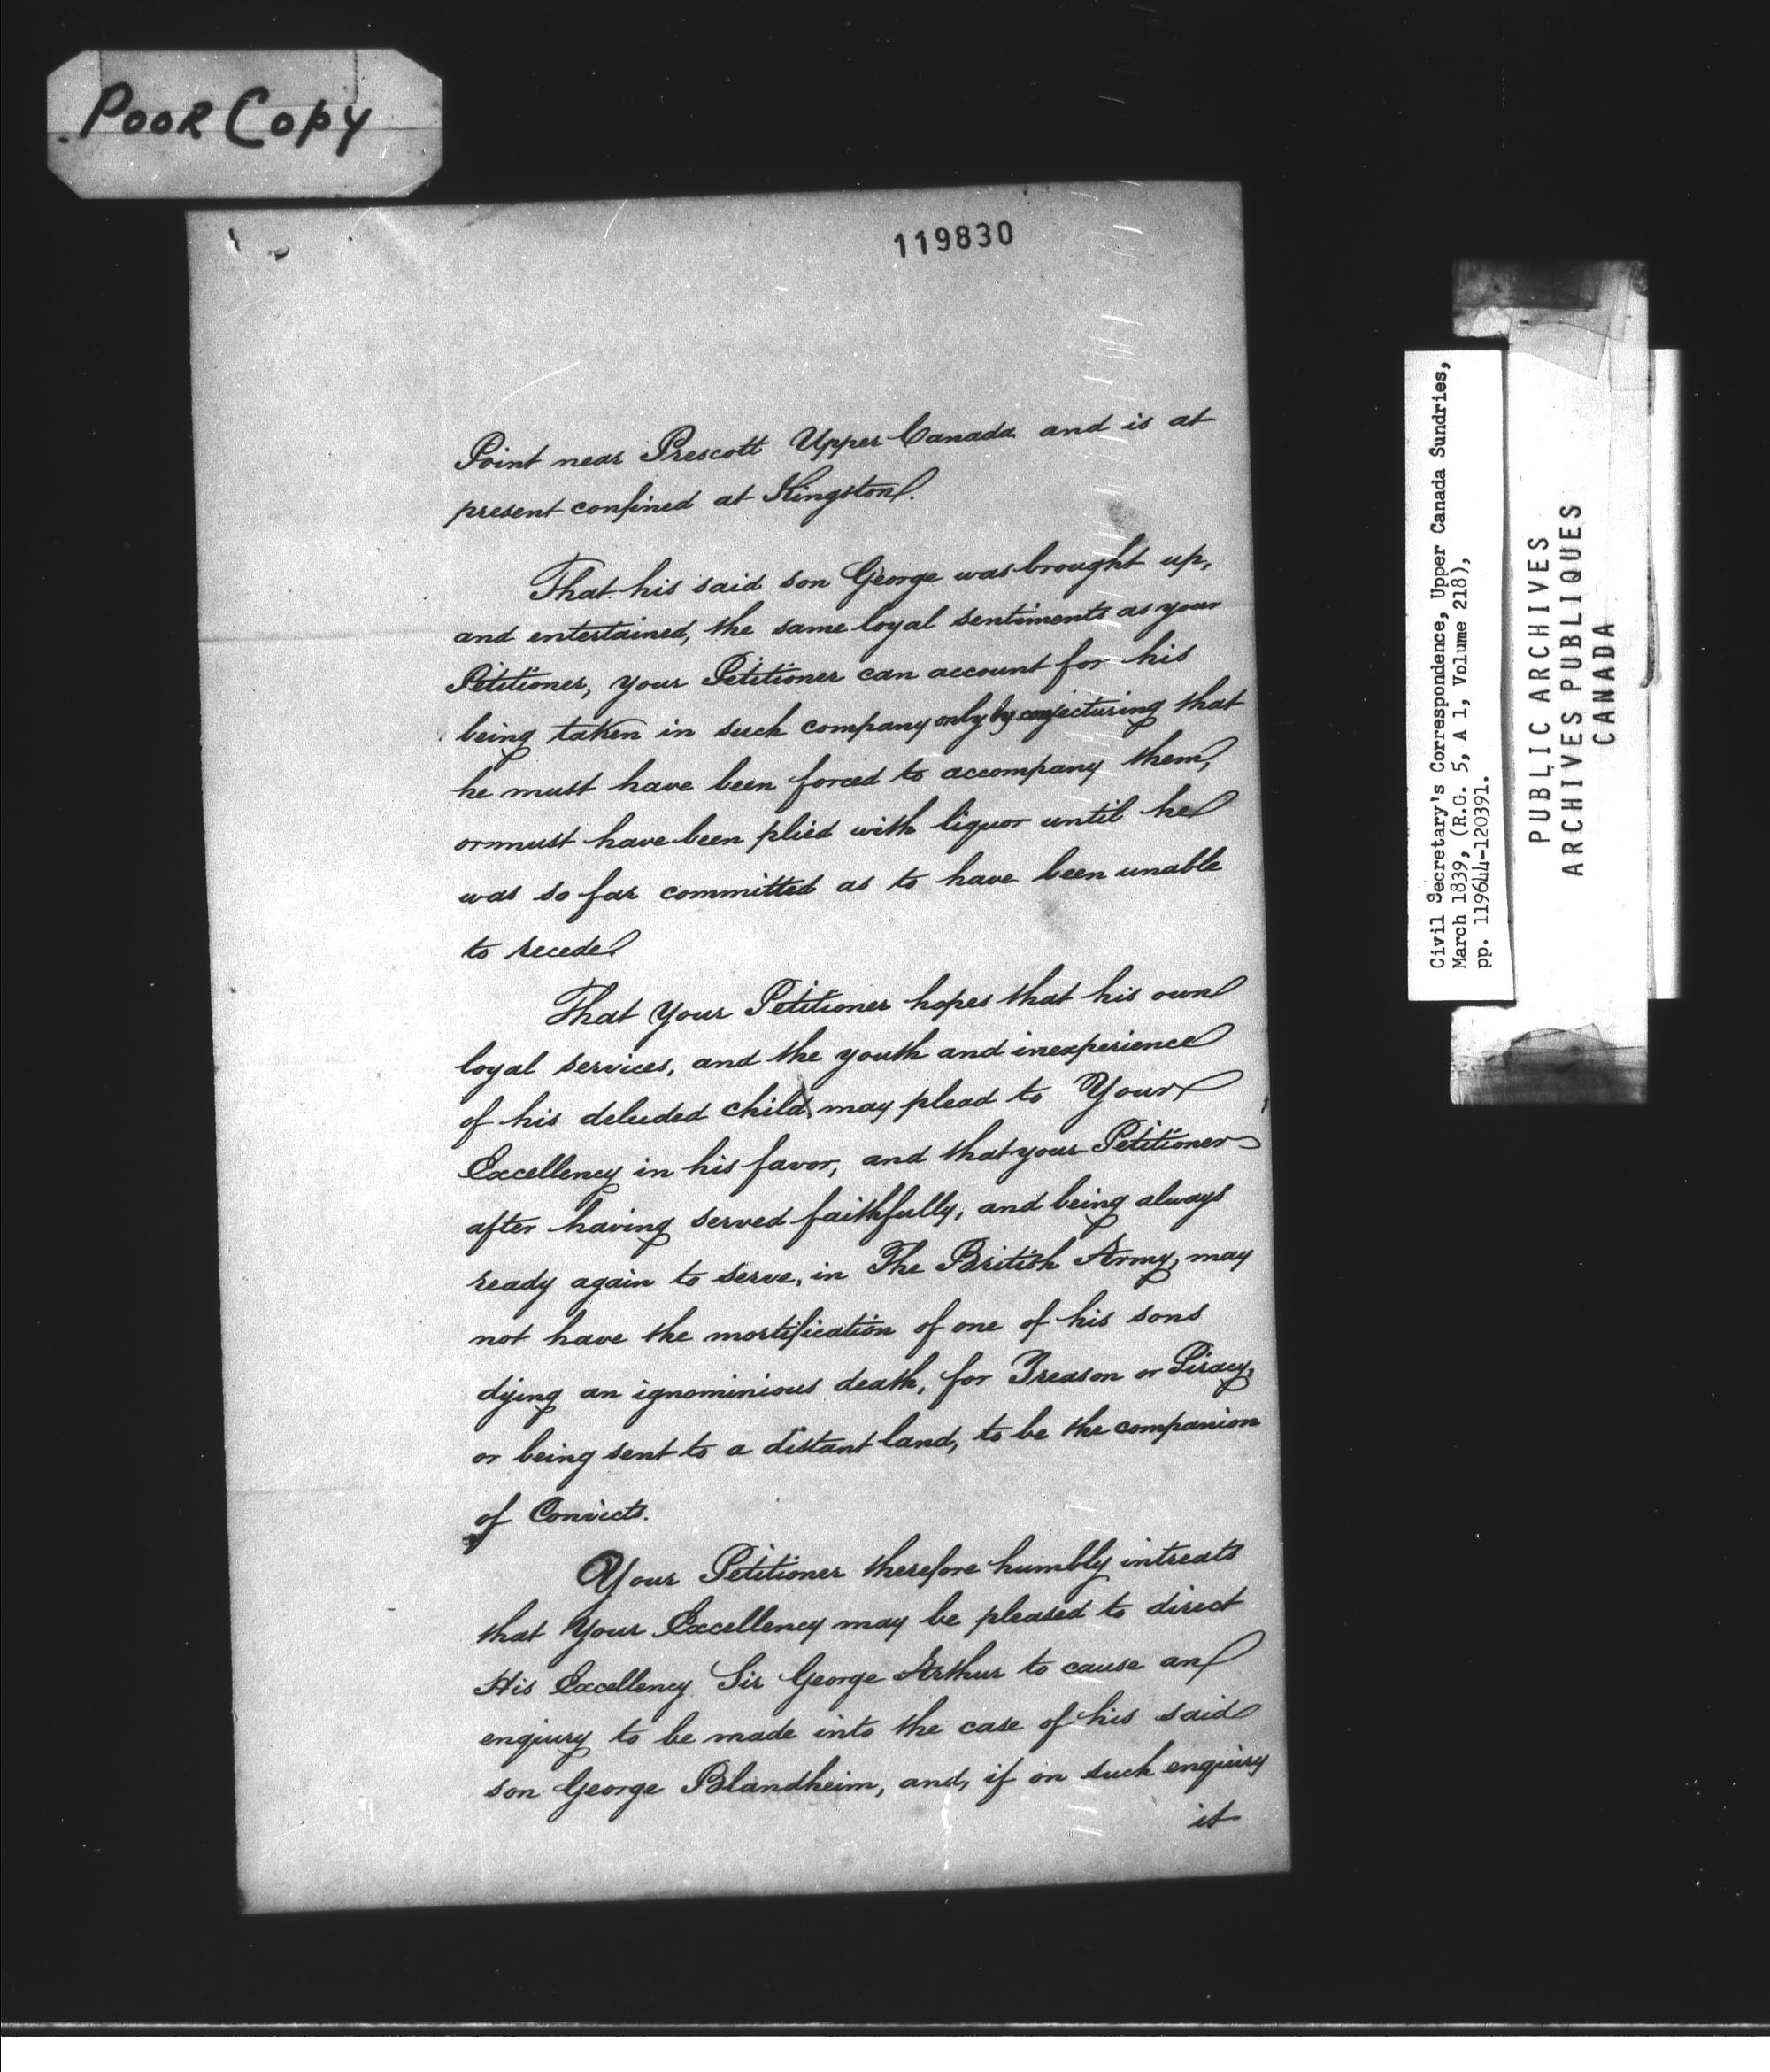 Poor Copy
119830
Point near Prescott Upper Canada and is at
present confined at Kingston.
That his said son George was brought up,
and entertained, the same loyal sentiments as your
Petitioner, your Petitioner can account for his
being taken in such company only by conjecturing that
he must have been forced to accompany them,
or must have been plied with liquor until he
was so far committed as to have been unable
to recede
That Your Petitioner hopes that his own
loyal services, and the youth and inexperience
of his deluded child, may plead to Your
Excellency in his favor, and that your Petitioner
after having served faithfully, and being always
ready again to serve, in The British Army, may
not have the mortification of one of his sons
dying an ignominious death, for Treason or Piracy,
or being sent to a distant land, to be the companion
of Convicts.
Your Petitioner therefore humbly intreats
that Your Excellency may be pleased to direct
His Excellency Sir George Arthur to cause an
enquiry to be made into the case of his said
son George Blandheim, and, if on such enquiry
it
Civil Secretary's Correspondence, Upper Canada Sundries,
March 1839, (R.G. 5, A 1, Volume 218),
pp. 119644-120391.
PUBLIC ARCHIVES
ARCHIVES PUBLIQUES
CANADA